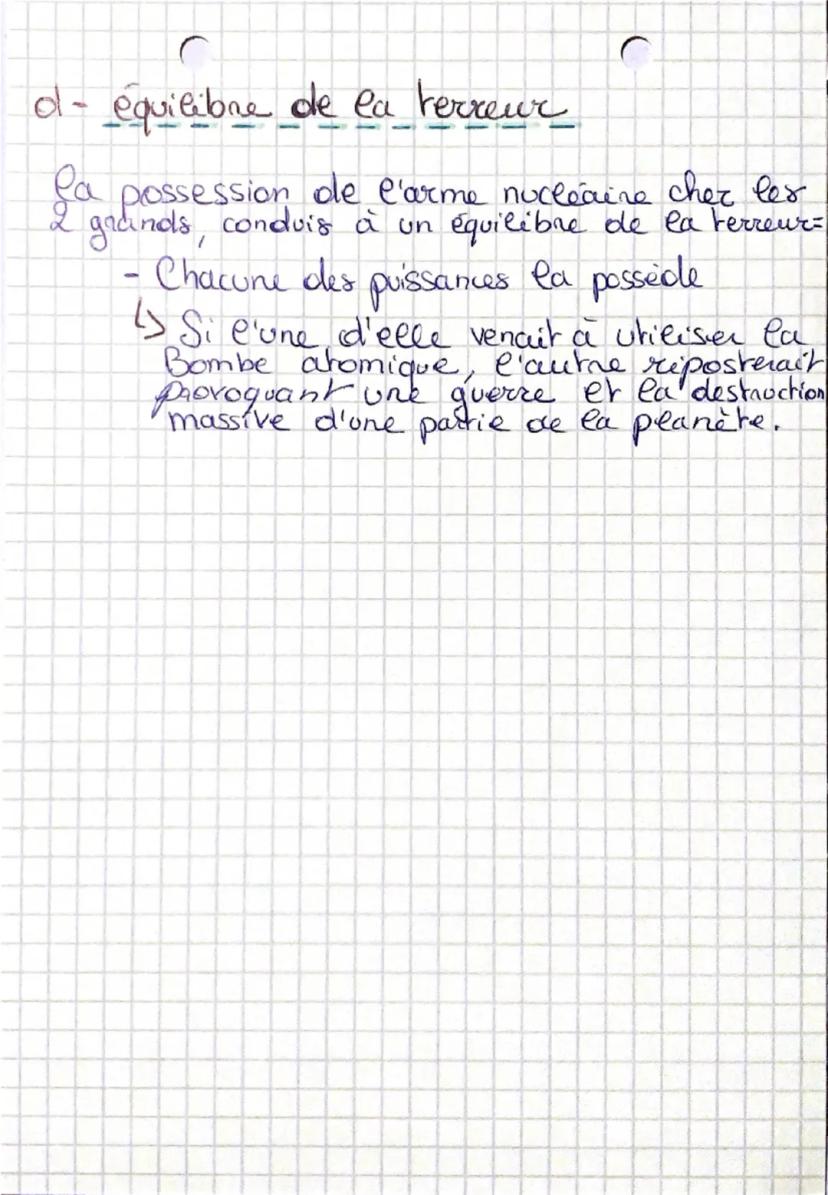 d - équilibre de la terreur
la possession de l'arme nucléaire chez les
2 grands, conduis à un équilibre de la terreur=
- Chacune des puissances la possède
↳ Si l'une d'elle venait à utiliser la
Bombe atomique, l'autre riposterait
provoquant une guerre et la destruction
massive d'une partie de la planète.